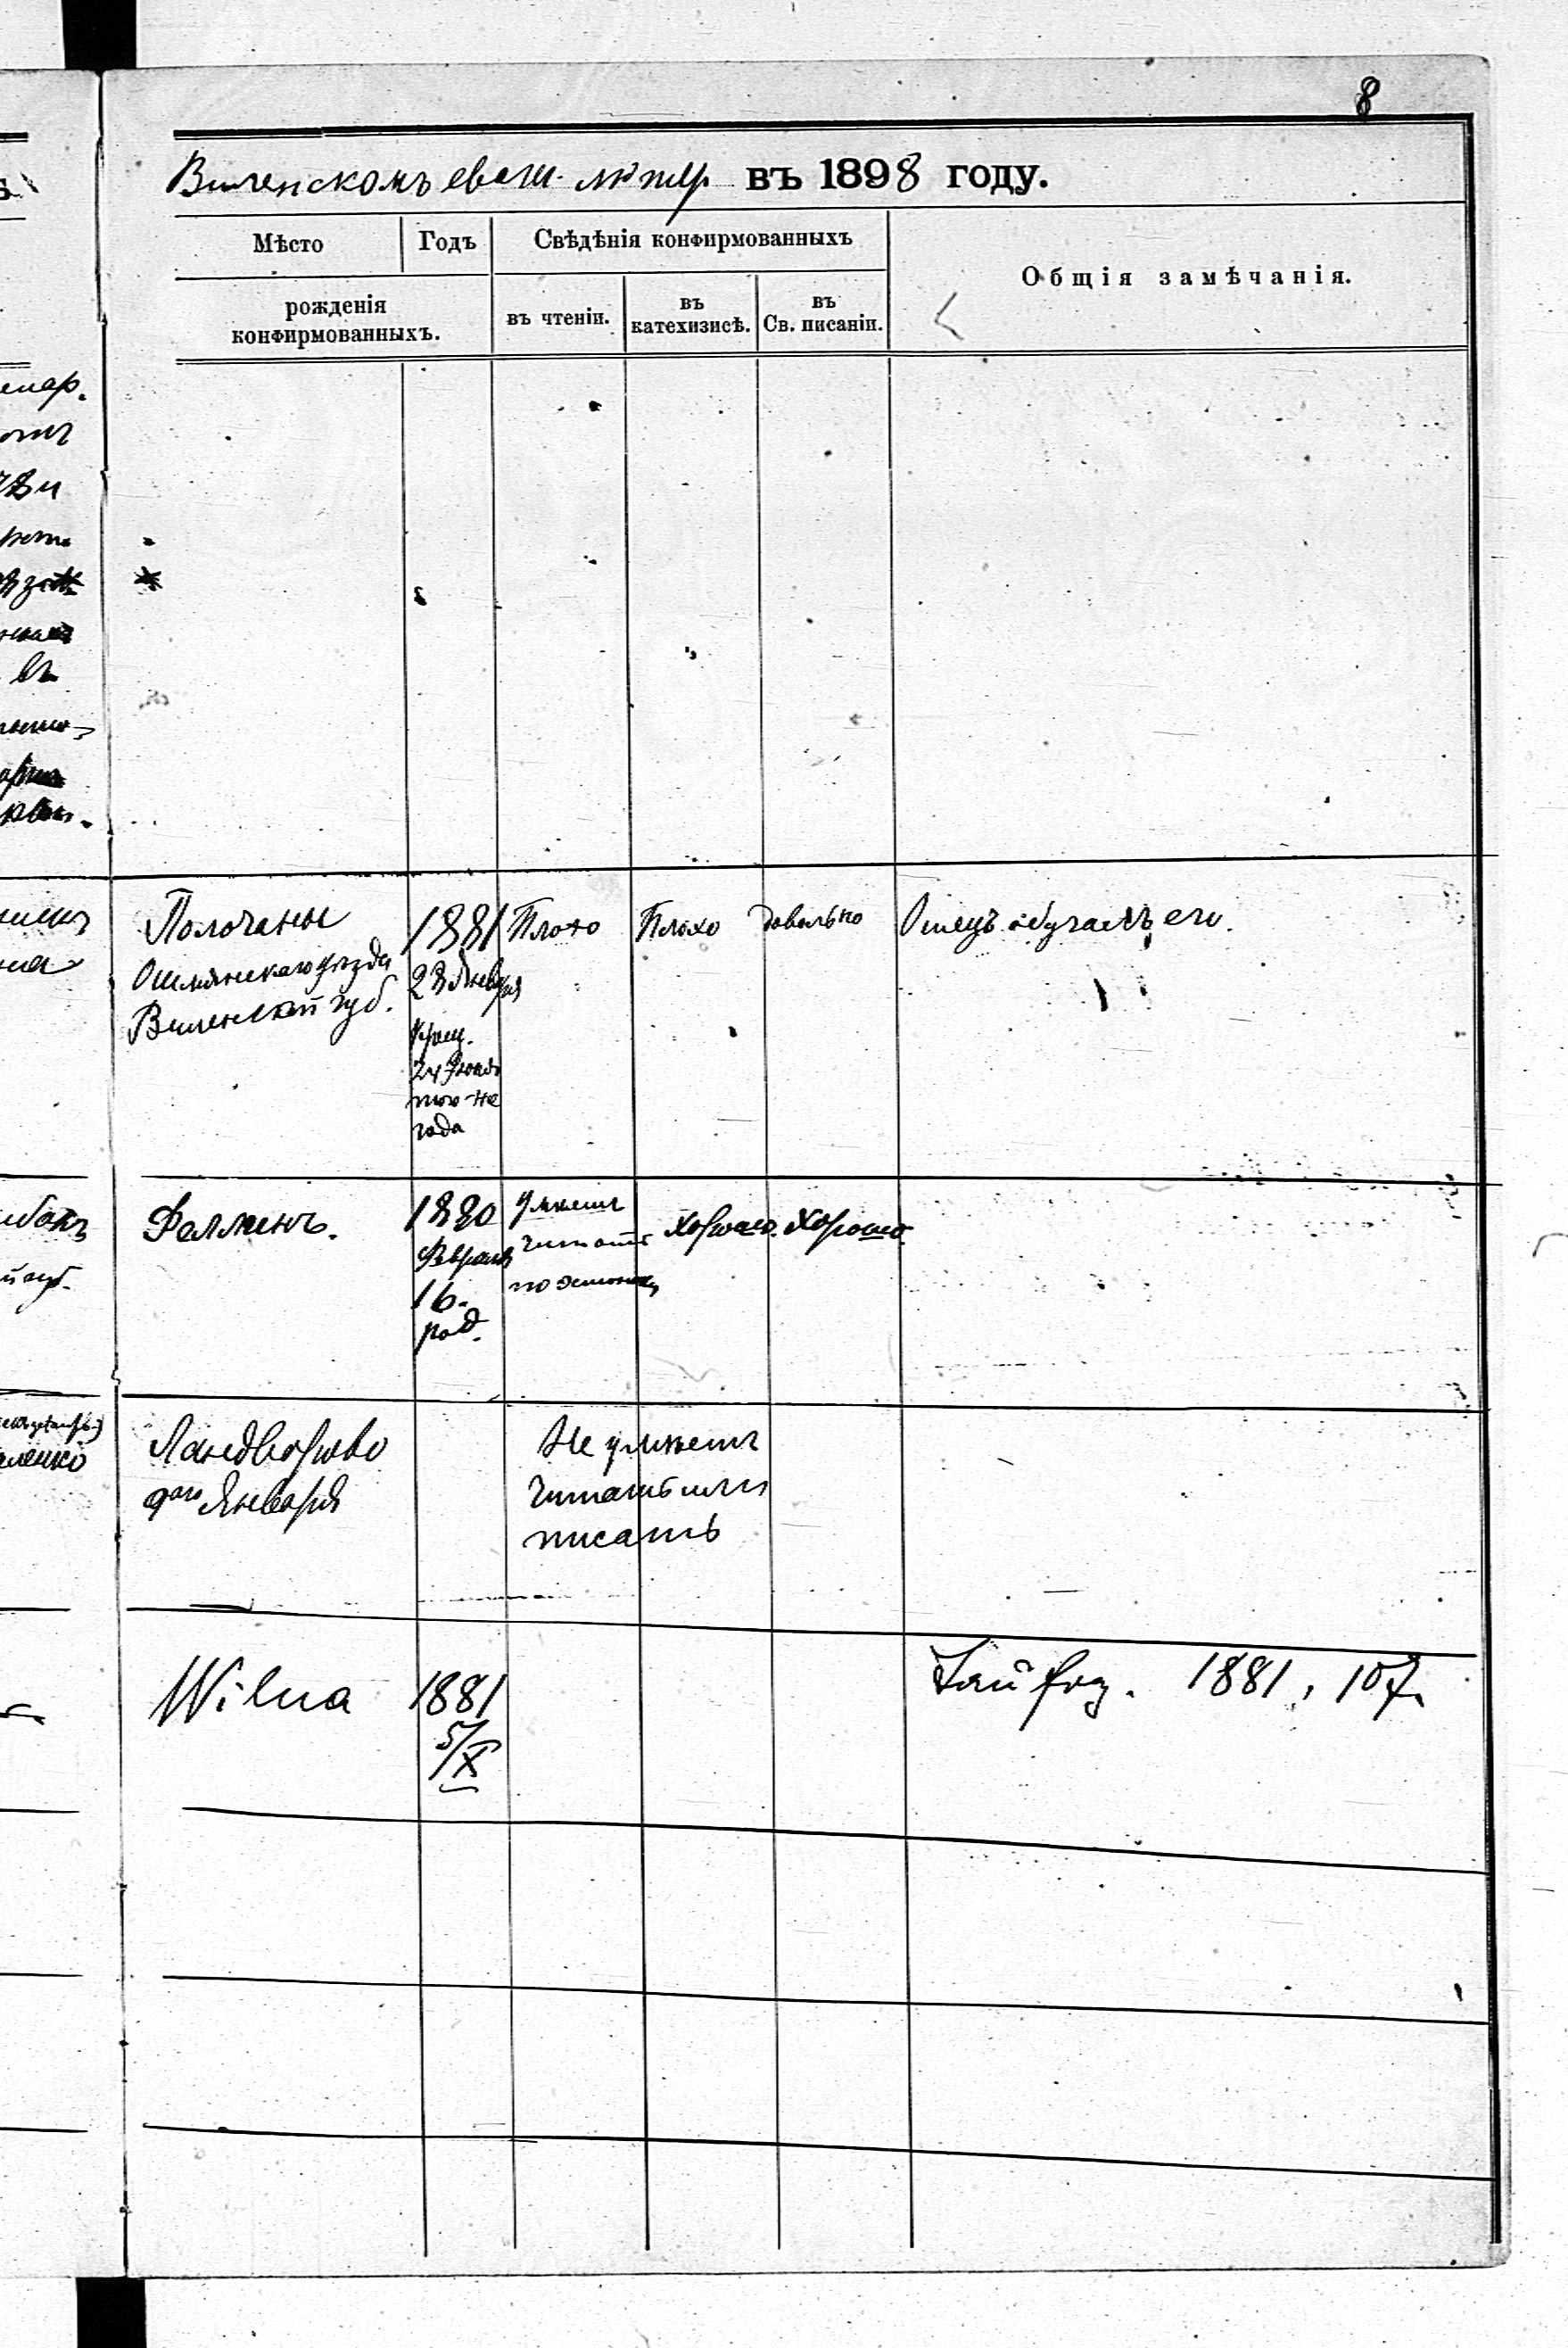 8
Виленскомъ еванг. лютер въ 1898 году.
Мѣсто
Годъ
рожденія
конфирмованныхъ.
Свѣдѣнія конфирмованныхъ
въ чтеніи.
въ
катехизисѣ.
въ
Св. писаніи.
Общія замѣчанія.
въ
Полочаны
Ошмянскаго уѣзда
Виленской губ.
1881
28 Января
Крещ.
года
Плохо
Плохо
довольно
Отецъ обучалъ его.
Феллинъ.
1880
Февраля
16.
род.
умѣетъ
читать
по эстонск
Хорошо.
Хорошо.
Ландворово
9ого Января
Не умѣетъ
читать или
писать
Wilna
1881
5/X
1881, 107.